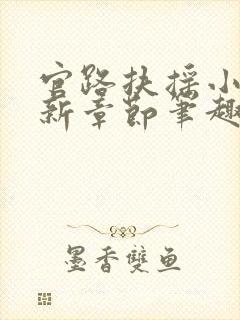 官路扶摇小
新章节笔趣
墨香雙鱼